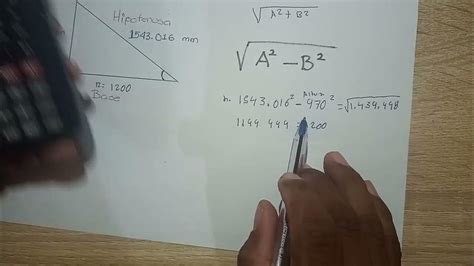 Hipotenusa
1543.016 mm
n: 1200
Base
√A²+B²
√A²−B²
h. 1543.016² − 970² = √1,439,998
1199.999 = 1200